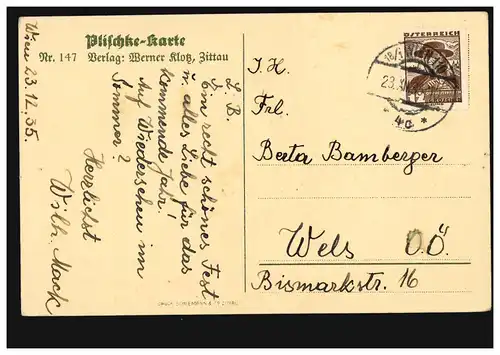 Plischke-Karte
Nr. 147 Verlag: Werner Klotz, Zittau
Wien 23.12.35.
L. B.
Ein recht schönes Fest
u. alles Liebe für das
kommende Jahr!
Auf Wiedersehen im
Sommer?
Herzlichst
Wilh. Mack
ÖSTERREICH
4c *
I. H.
Frl.
Berta Bamberger
Wels O.Ö.
Bismarkstr. 16